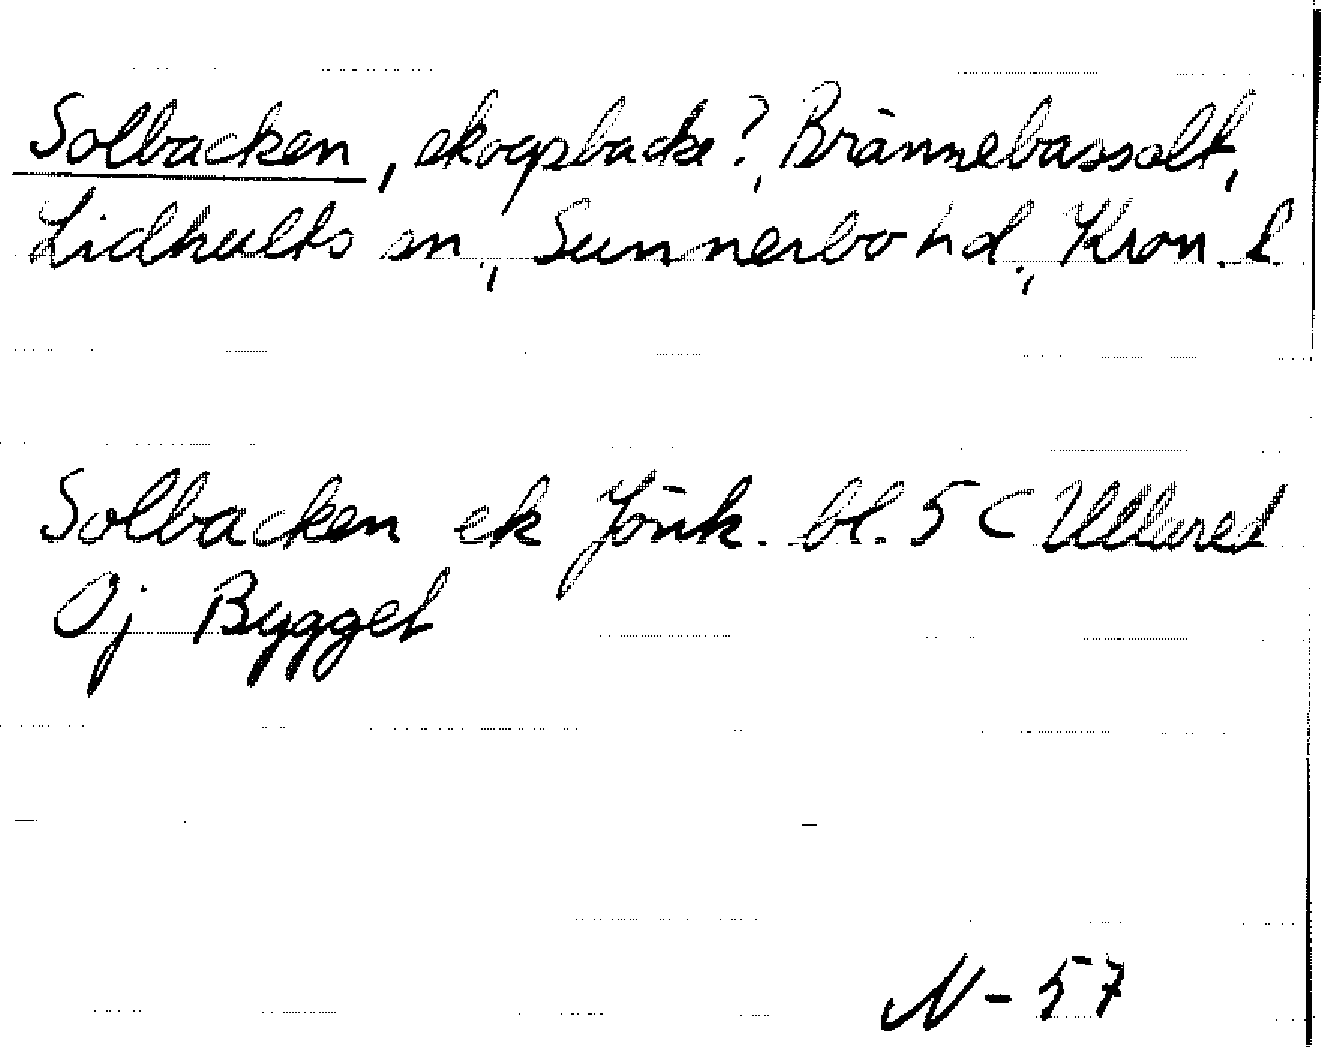 Solbacken, skogsbacke?, Brännebassalt,
Lidhults sn, Sunnerbo hd., Kron. l.
Solbacken ek Jönk. bl. 5 C Ullared
Oj Bygget
N-57